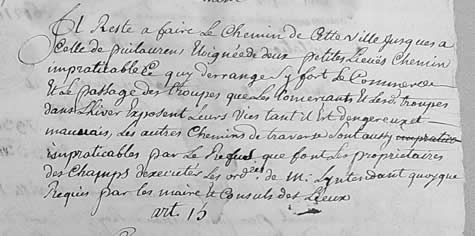 Il Reste a faire Le Chemin de Cette Ville Jusques a
Celle de puilaurens Eloignée de deux petites Lieues Chemin
impraticable Ce quy derrange Sy fort Le Commerce
Et Le passage des troupes que Les Comercants Et Lesd. troupes
dans Lhiver Exposent Leurs Vies tant il Est dengereux et
mauvais, Les autres Chemins de traverse Sont aussy
impraticables par Le Refus que font Les proprietaires
des Champs dexecuter Les ord.ces de M. Lyntendant quoyque
Requis par Les maire et Consuls des Lieux
art. 15